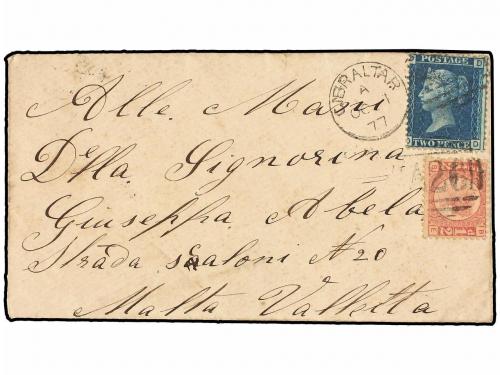 Alle Mani
Della Signorina
Giuseppa Abela
Strada scaloni N 20
Malta Valletta
GIBRALTAR
A
OC
77
POSTAGE
TWO PENCE
A26